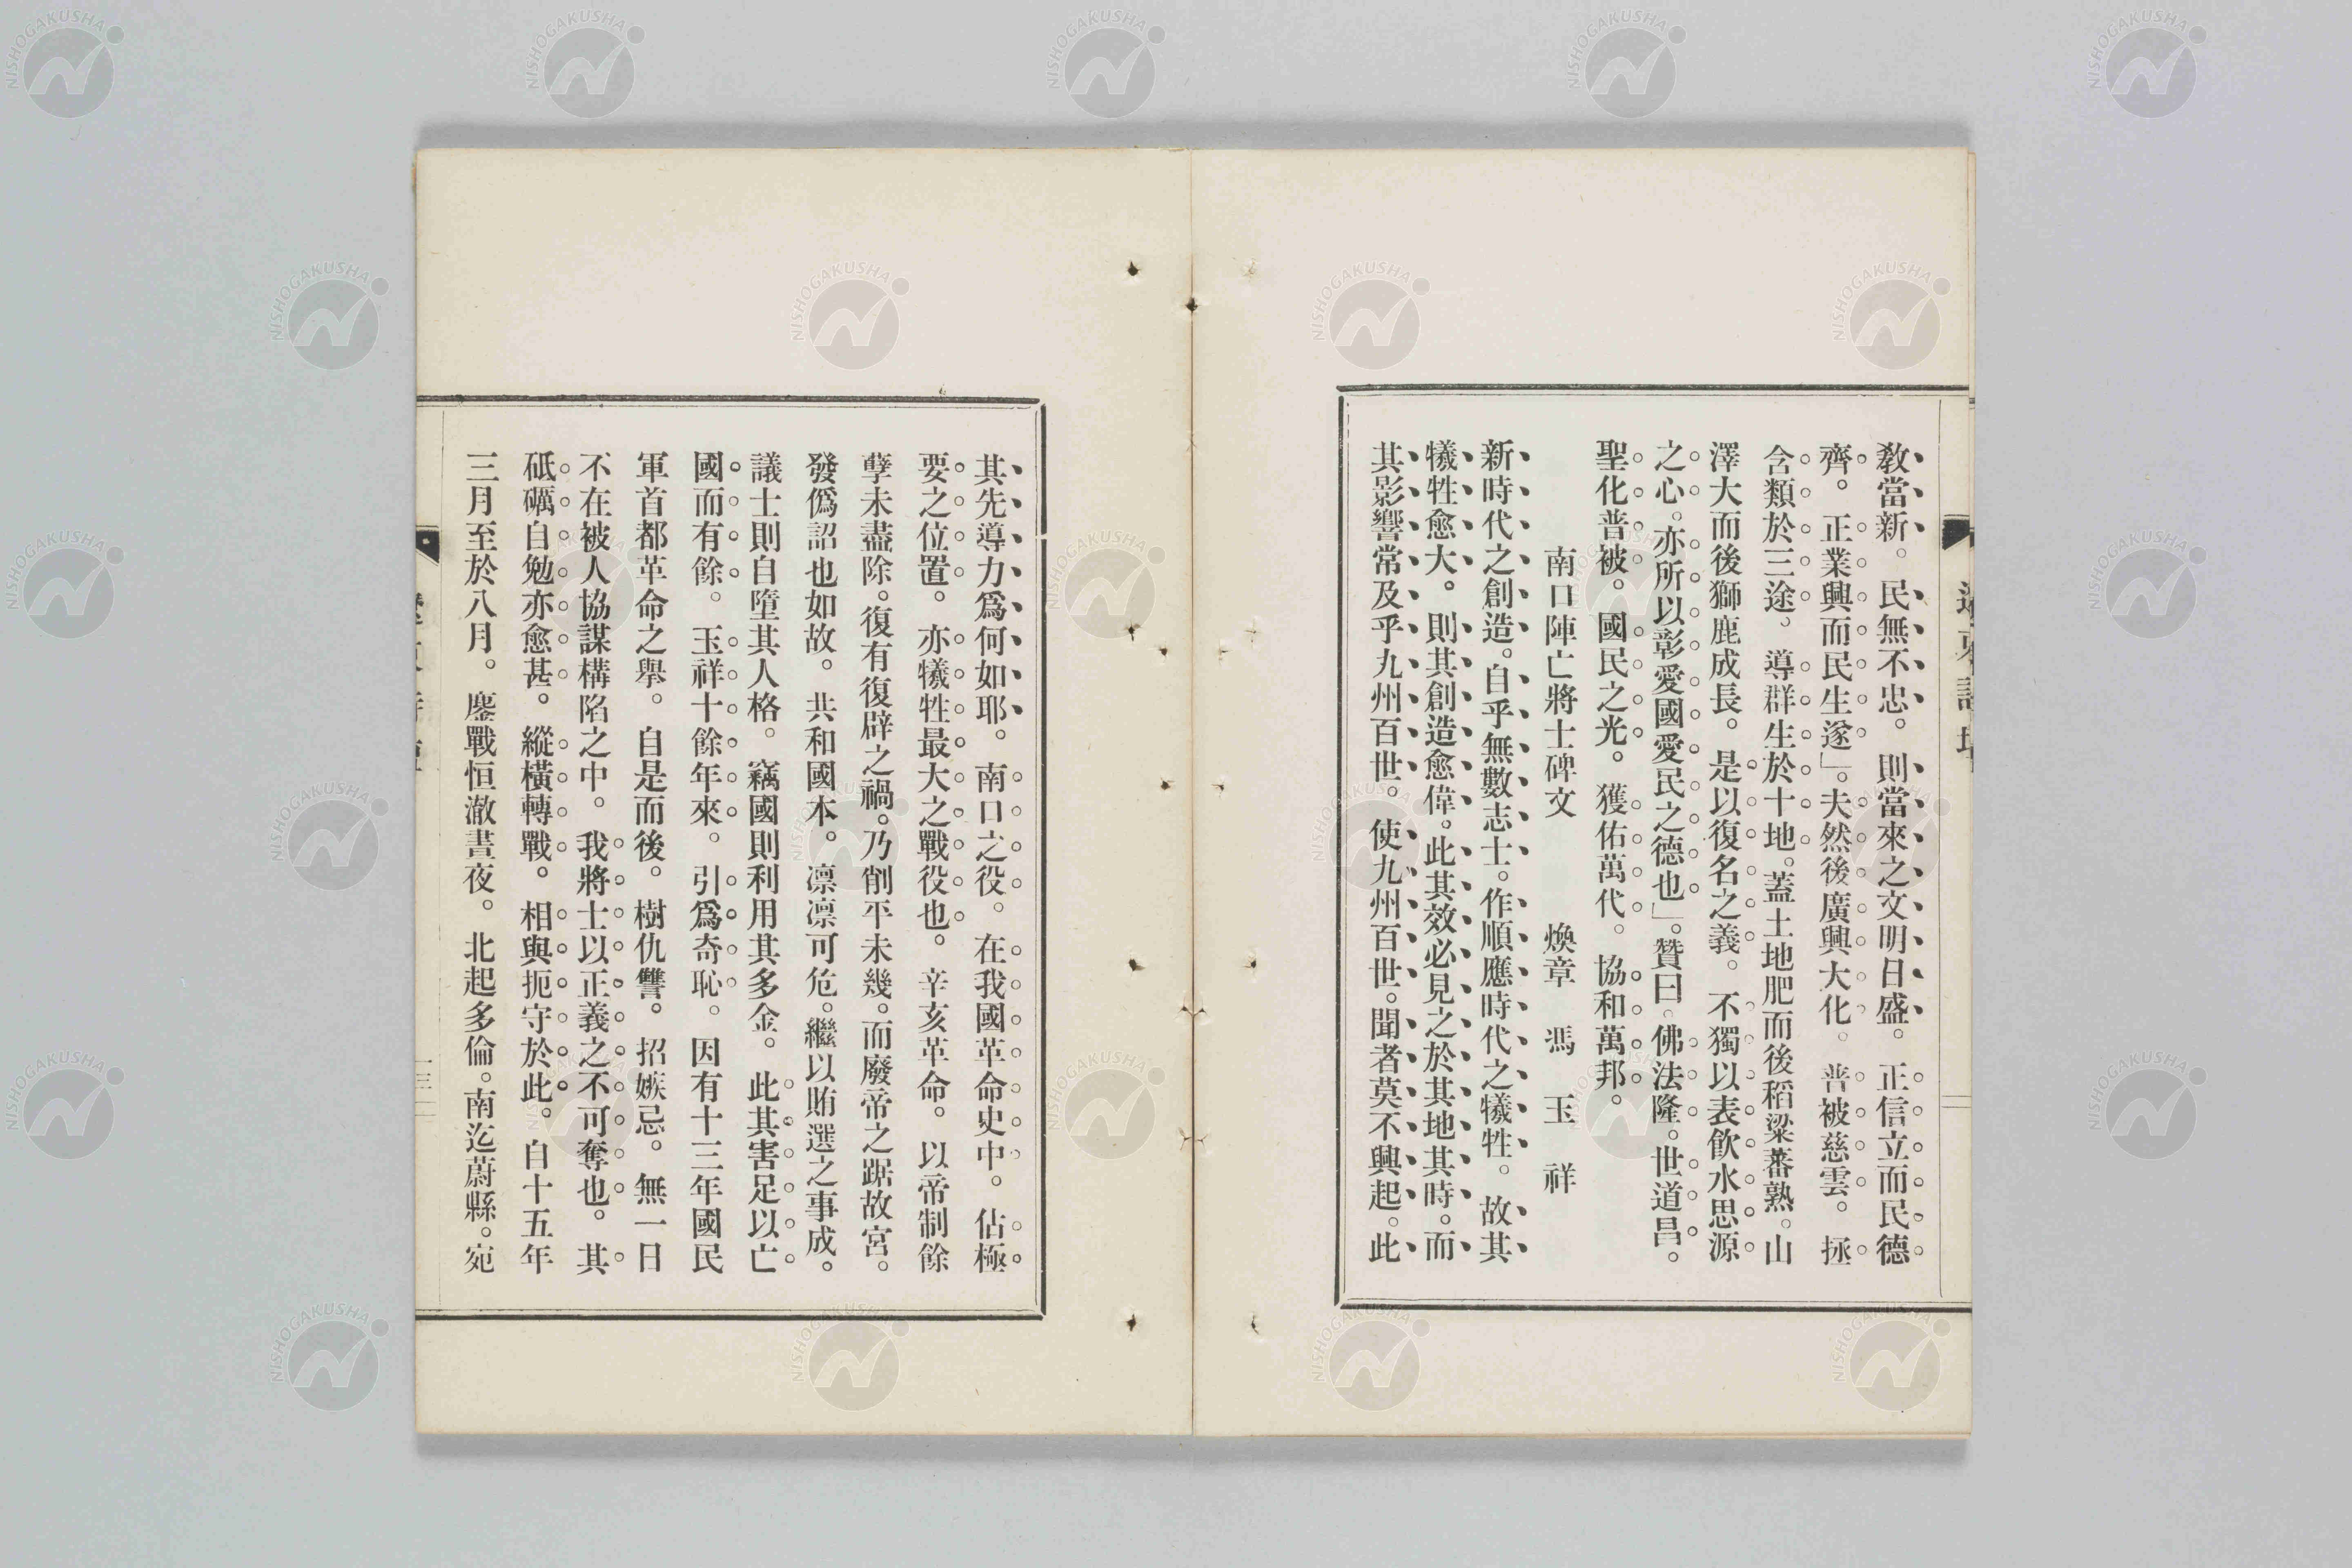 敎當新。民無不忠。則當來之文明日盛。正信立而民德
齊。正業興而民生遂」。夫然後廣興大化。普被慈雲。拯
含類於三途、導群生於十地。蓋土地肥而後稻粱蕃熟。山
澤大而後獅鹿成長。是以復名之義。不獨以表飲水思源
之心。亦所以彰愛國愛民之德也」。贊曰。佛法隆。世道昌。
聖化普被。國民之光。獲佑萬代。協和萬邦。
南口陣亡將士碑文　煥章　馮玉祥
新時代之創造。自乎無數志士。作順應時代之犧牲。故其
犧牲愈大。則其創造愈偉。此其效必見之於其地其時。而
其影響常及乎九州百世。使九州百世。聞者莫不興起。此
其先導力爲何如耶。南口之役。在我國革命史中。佔極
要之位置。亦犧牲最大之戰役也。辛亥革命。以帝制餘
孽未盡除。復有復辟之禍。乃削平未幾。而廢帝之踞故宮。
發僞詔也如故。共和國本。凛凛可危。繼以賄選之事成。
議士則自墮其人格。竊國則利用其多金。此其害足以亡
國而有餘。玉祥十餘年來。引爲奇恥。因有十三年國民
軍首都革命之舉。自是而後。樹仇讐。招嫉忌。無一日
不在被人協謀構陷之中。我將士以正義之不可奪也。其
砥礪自勉亦愈甚。縱橫轉戰。相與扼守於此。自十五年
三月至於八月。鏖戰恒澈晝夜。北起多倫。南迄蔚縣。宛
NISHOGAKUSHA